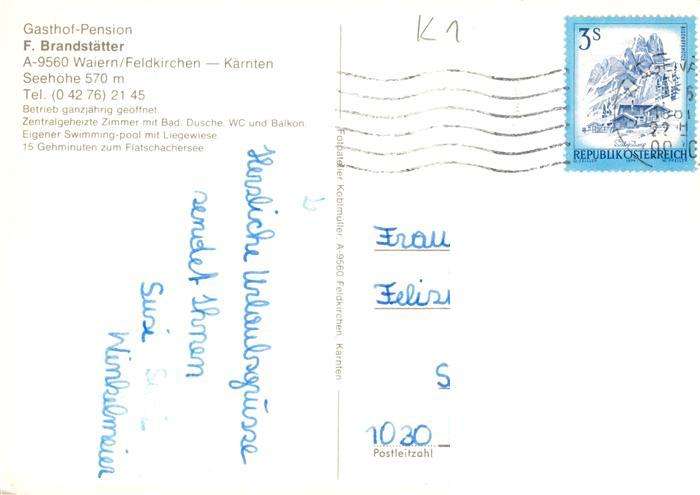 Gasthof-Pension
F. Brandstätter
A-9560 Waiern/Feldkirchen — Kärnten
Seehöhe 570 m
Tel. (0 42 76) 21 45
Betrieb ganzjährig geöffnet
Zentralgeheizte Zimmer mit Bad, Dusche, WC und Balkon
Eigener Swimming-pool mit Liegewiese
15 Gehminuten zum Flatschachersee
K1
3S
REPUBLIK ÖSTERREICH
Fotoatelier Koblmüller, A-9560 Feldkirchen, Kärnten
Herzliche Urlaubsgrüsse
sendet Ihnen
Susi
Winkelmeier
Frau
Felizi
S
1030
Postleitzahl